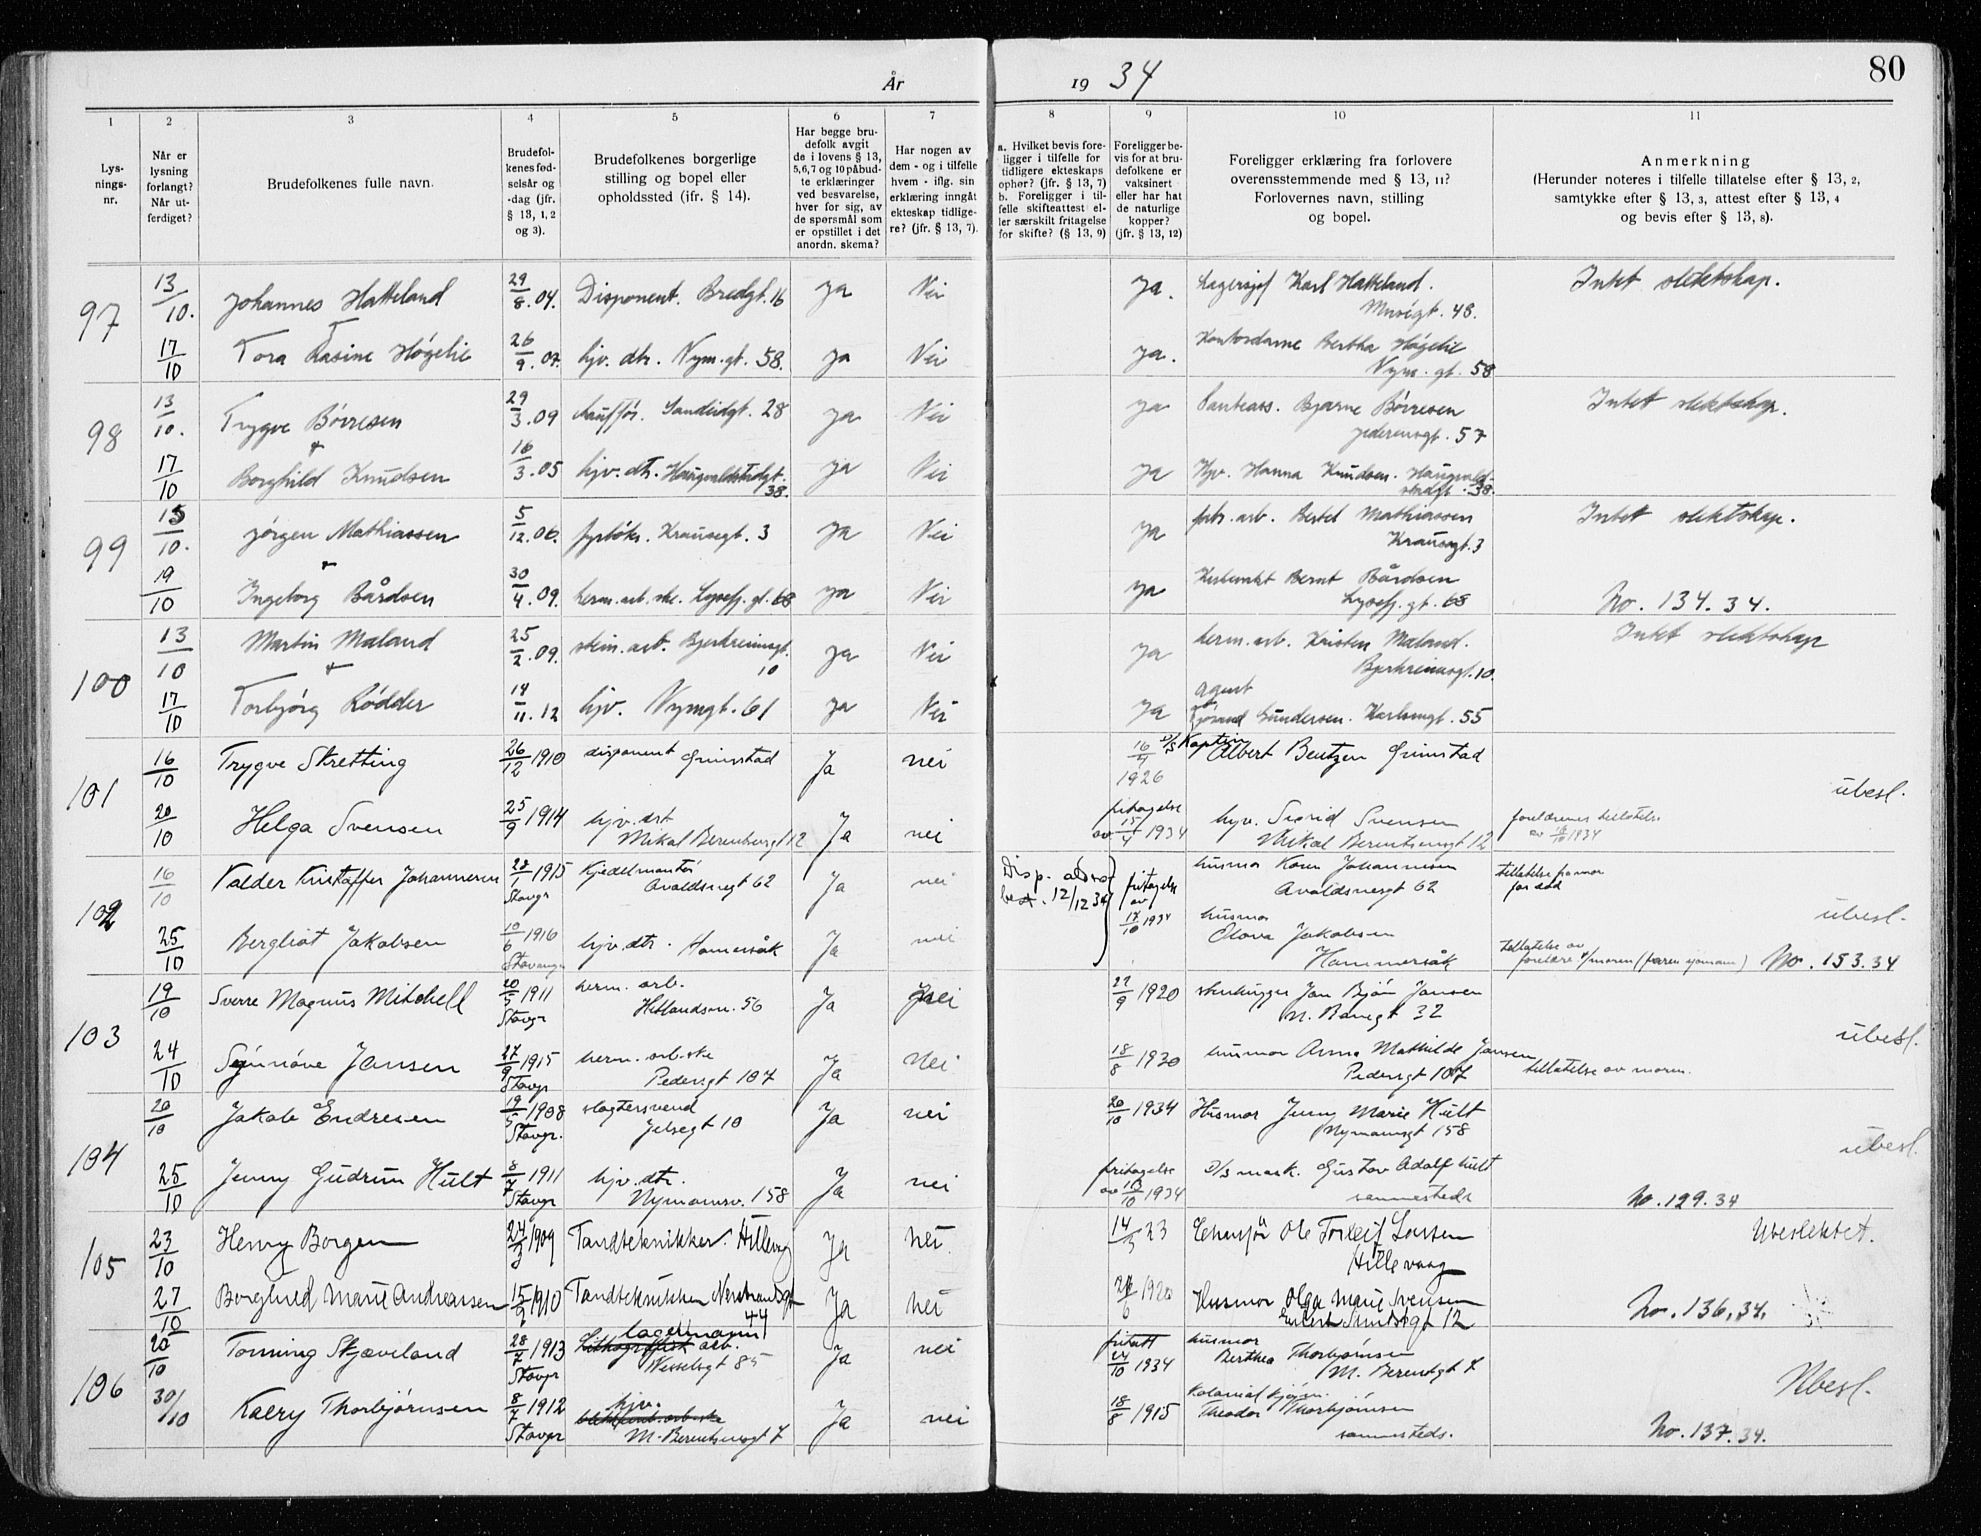 80
År 1934
1 2 3 4 5 6 7 8 9 10 11
Lys-
nings-
nr.
Når er
lysning
forlangt?
Når ut-
ferdiget?
Brudefolkenes fulle navn.
Brudefol-
kenes fød-
selsår og
-dag (jfr.
§ 13, 1, 2
og 3).
Brudefolkenes borgerlige
stilling og bopel eller
opholdssted (ifr. § 14).
Har begge bru-
defolk avgit
de i lovens § 13,
5,6,7 og 10 påbud-
te erklæringer
ved besvarelse,
hver for sig, av
de spørsmål som
er opstillet i det
anordn. skema?
Har nogen av
dem - og i tilfelle
hvem - iflg. sin
erklæring inngåt
ekteskap tidlige-
re? (jfr. § 13, 7).
a. Hvilket bevis fore-
ligger i tilfelle for
tidligere ekteskaps
ophør? (jfr. § 13, 7)
b. Foreligger i til-
felle skifteattest el-
ler særskilt fritagelse
for skifte? (§ 13, 9)
Foreligger be-
vis for at bru-
defolkene er
vaksinert
eller har hat
de naturlige
kopper?
(jfr. § 13, 12)
Foreligger erklæring fra forlovere
overensstemmende med § 13, 11?
Forlovernes navn, stilling
og bopel.
Anmerkning
(Herunder noteres i tilfelle tillatelse efter § 13, 2,
samtykke efter § 13, 3, attest efter § 13, 4
og bevis efter § 13, 8).
97 13/10. Johannes Hatteland 29/8.04. Disponent. Bredgt. 16 ja Nei ja. Lagersjef Karl Hatteland. Intet slektskap.
Muségt. 48.
17/10 Tora Rasine Høgelie 26/9.07. hjv. dtr. Nym. gt. 58. ja Nei ja. Kontordame Bertha Høgelie
Nym. gt. 58
98 13/10. Trygve Børresen 29/3.09 chauffør. Sandeidgt. 28 ja Nei ja Bjarne Børresen Intet slektskap.
Jederensgt. 57
17/10 Borghild Knudsen 16/3.05 hjv. dtr. Haugvaldstadgt. ja Nei ja Hjv. Hanna Knudsen. Haugvald-
38. stadgt. 38.
99 15/10. Jørgen Mathiassen 5/12.06. fyrbøter. Krausegt. 3 ja Nei ja fabr. arb. Bertel Mathiassen Intet slektskap.
Krausegt. 3
19/10 Ingeborg Bårdsen 30/4.09. herm. arb. ske. Lysefj. gt. 68 ja Nei ja Bernt Bårdsen
Lysefj. gt. 68 No. 134. 34.
100 13/10 Martin Maland 25/2.09. stein. arb. Bjerkreimsgt. ja Nei ja herm. arb. Kristen Maland. Intet slektskap
10 Bjerkreimsgt. 10.
17/10 Torbjørg Rødder 14/11.12 hjv. Nymgt. 61 ja Nei ja agent
Gundersen. Karlsmgt. 55
101 16/10 Trygve Stretting 26/12 1910 disponent Grimstad Ja nei 16/4 1926 D/S Kaptein
Albert Bentzen Grimstad ubesl.
20/10 Helga Svensen 25/9 1914 hjv. dtr Ja nei fritagelse hjv. Sigrid Svensen forelærenes tillatelse
Mikal Berentsensgt 12 av 15/4 1934 Mikal Berentsensgt 12 av 16/10 1934
102 16/10 Valder Kristoffer Johannesen 28/1 1915 Kjedelmontør Ja nei Disp. aldrer fritagelse husmor Karen Johannesen tillatelse fra mor
Stavgr Avaldsnesgt 62 best. 12/12 34 av 17/10 1934 Avaldsnesgt 62 far død ubesl.
25/10 Bergliot Jakobsen 10/6 1916 hjv. dtr. Hommersåk Ja nei husmor
Stavanger Olava Jakobsen tillatelse av
Hommersåk forelære v/moren (faren sjømann) No. 153. 34
103 19/10 Sverre Magnus Mitchell 20/5 1911 herm. arb. Ja nei 27/9 1920 stenhugger Jan Bjørn Jansen
Stavgr Hetlandsm. 56 N. Banegt 32 ubesl.
24/10 Synnøve Jansen 27/9 1915 herm. arb.ske Ja Nei 18/8 1930 husmor Anna Mathilde Jansen
Stavgr Pedersgt 107 Pedersgt 107 tillatelse av moren.
104 20/10 Jakob Endresen 19/5 1908 slagtersvend Ja nei 20/10 1934 Husmor Jenny Marie Hult
Stavgr. Jelsegt 10 Nymannsgt 158 ubesl.
25/10 Jenny Gudrun Hult 8/7 1911 hjv. dtr. Ja nei fritagelse D/S mask. Gustav Adolf Hult
Stavgr Nymannsv. 158 av 13/10 1934 sammesteds No. 129. 34
105 23/10 Henry Borgen 24/3 1909 Tandtekniker Hillevåg Ja Nei 14/5 23 Ole Torleif Larsen Ubeslektet.
Hillevaag
27/10 Borghild Marie Andreassen 15/9 1910 Tandtekniker Nerstrandsgt Ja Nei 26/6 1920 Husmor Olga Marie Svensen
44 Eilert Sundtsgt 12 No. 136. 34.
106 20/10 Tonning Skjæveland 28/7 1913 lagermann Ja nei fritatt husmor
Stavgr Lithografisk arb. 24/10 1934 Berthea Thorbjørnsen
Wesselsgt 85 M. Berentsgt 7 Ubesl.
30/10 Kaery Thorbjørnsen 8/7 1912 hjv. Ja nei 18/8 1915 Kolonial kjøpm.
Stavgr M. Berentsensgt 7 Theodor Thorbjørnsen
sammesteds. No. 137. 34.